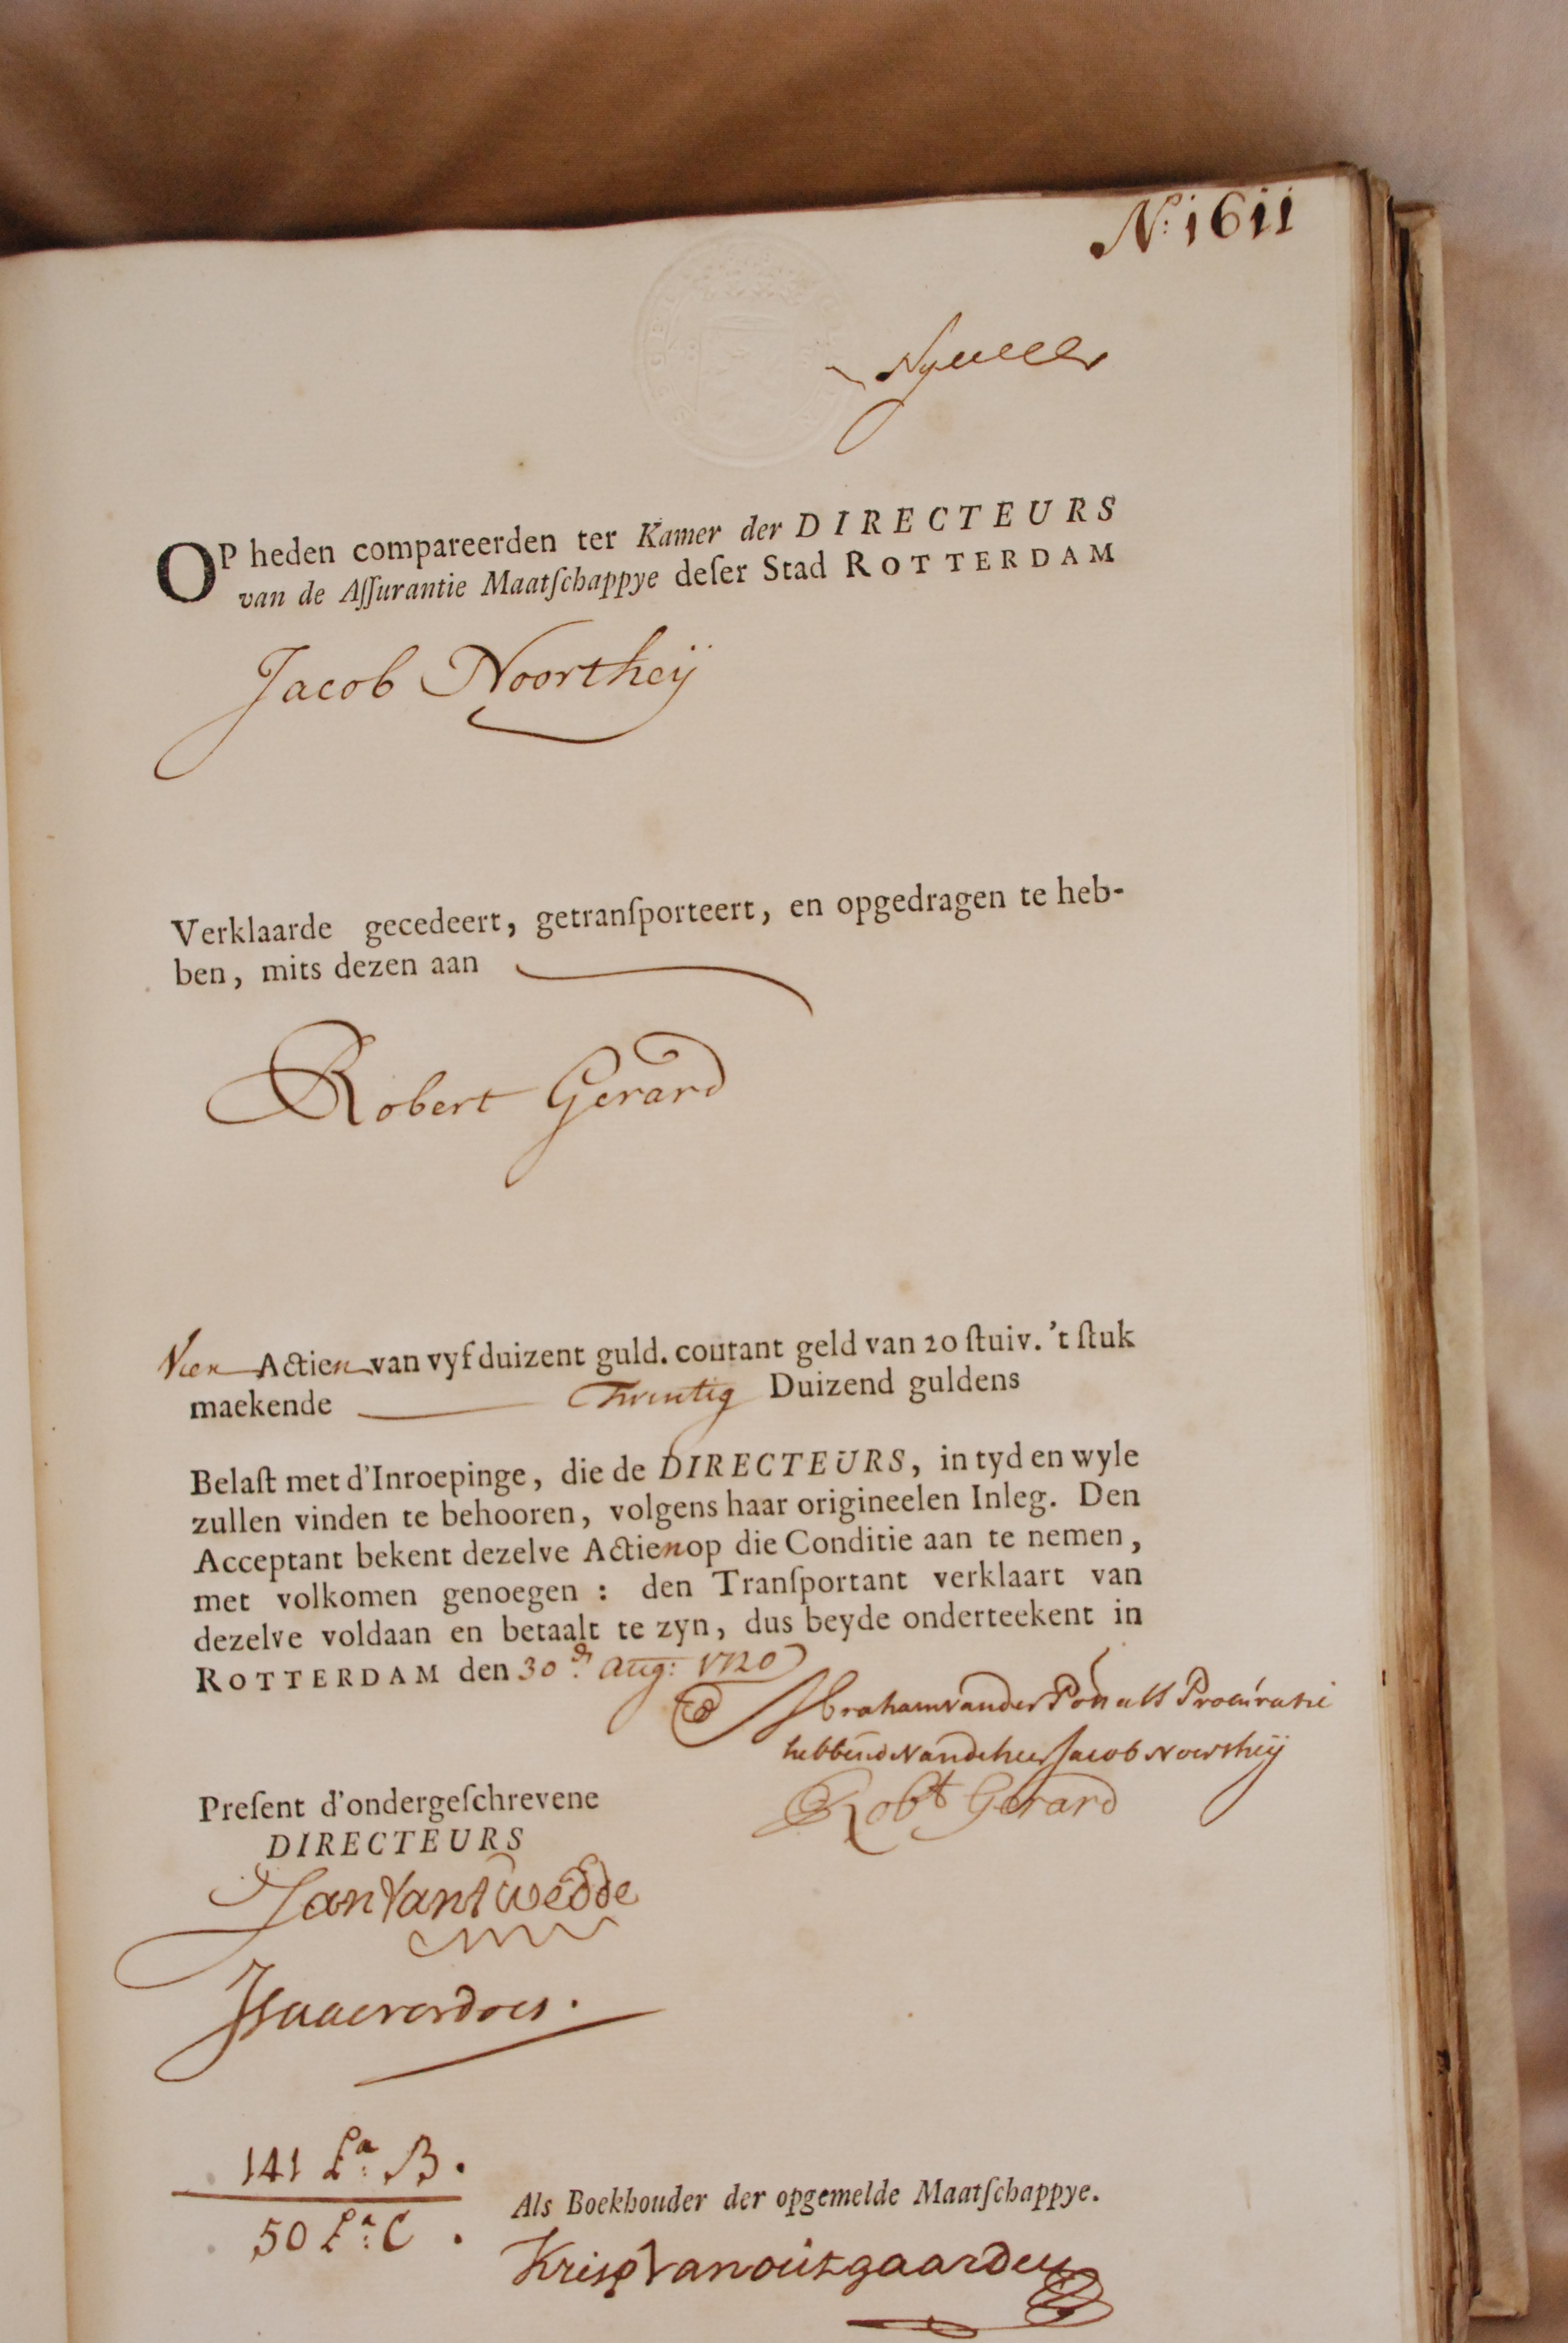 N:o 1611
OP heden compareerden ter Kamer der DIRECTEURS
van de Aſſurantie Maatſchappye deſer Stad ROTTERDAM
Jacob Noortheij
Verklaarde gecedeert, getranſporteert, en opgedragen te heb-
ben, mits dezen aan
Robert Gerard
Vier Actien van vyf duizent guld. coutant geld van 20 ſtuiv. 't ſtuk
maekende Twintig Duizend guldens
Belaſt met d'Inroepinge, die de DIRECTEURS, in tyd en wyle
zullen vinden te behooren, volgens haar origineelen Inleg. Den
Acceptant bekent dezelve Actien op die Conditie aan te nemen,
met volkomen genoegen : den Tranſportant verklaart van
dezelve voldaan en betaalt te zyn, dus beyde onderteekent in
ROTTERDAM den 30 Aug: 1720
Abraham vander Pot als Procuratie
hebbende van de heer Jacob Noortheij
Robt Gerard
Preſent d'ondergeſchrevene
DIRECTEURS
Jan Vant Wedde
Isaac verdoes.
141 La: B.
50 La: C.
Als Boekhouder der opgemelde Maatſchappye.
Krisp Van outgaarden